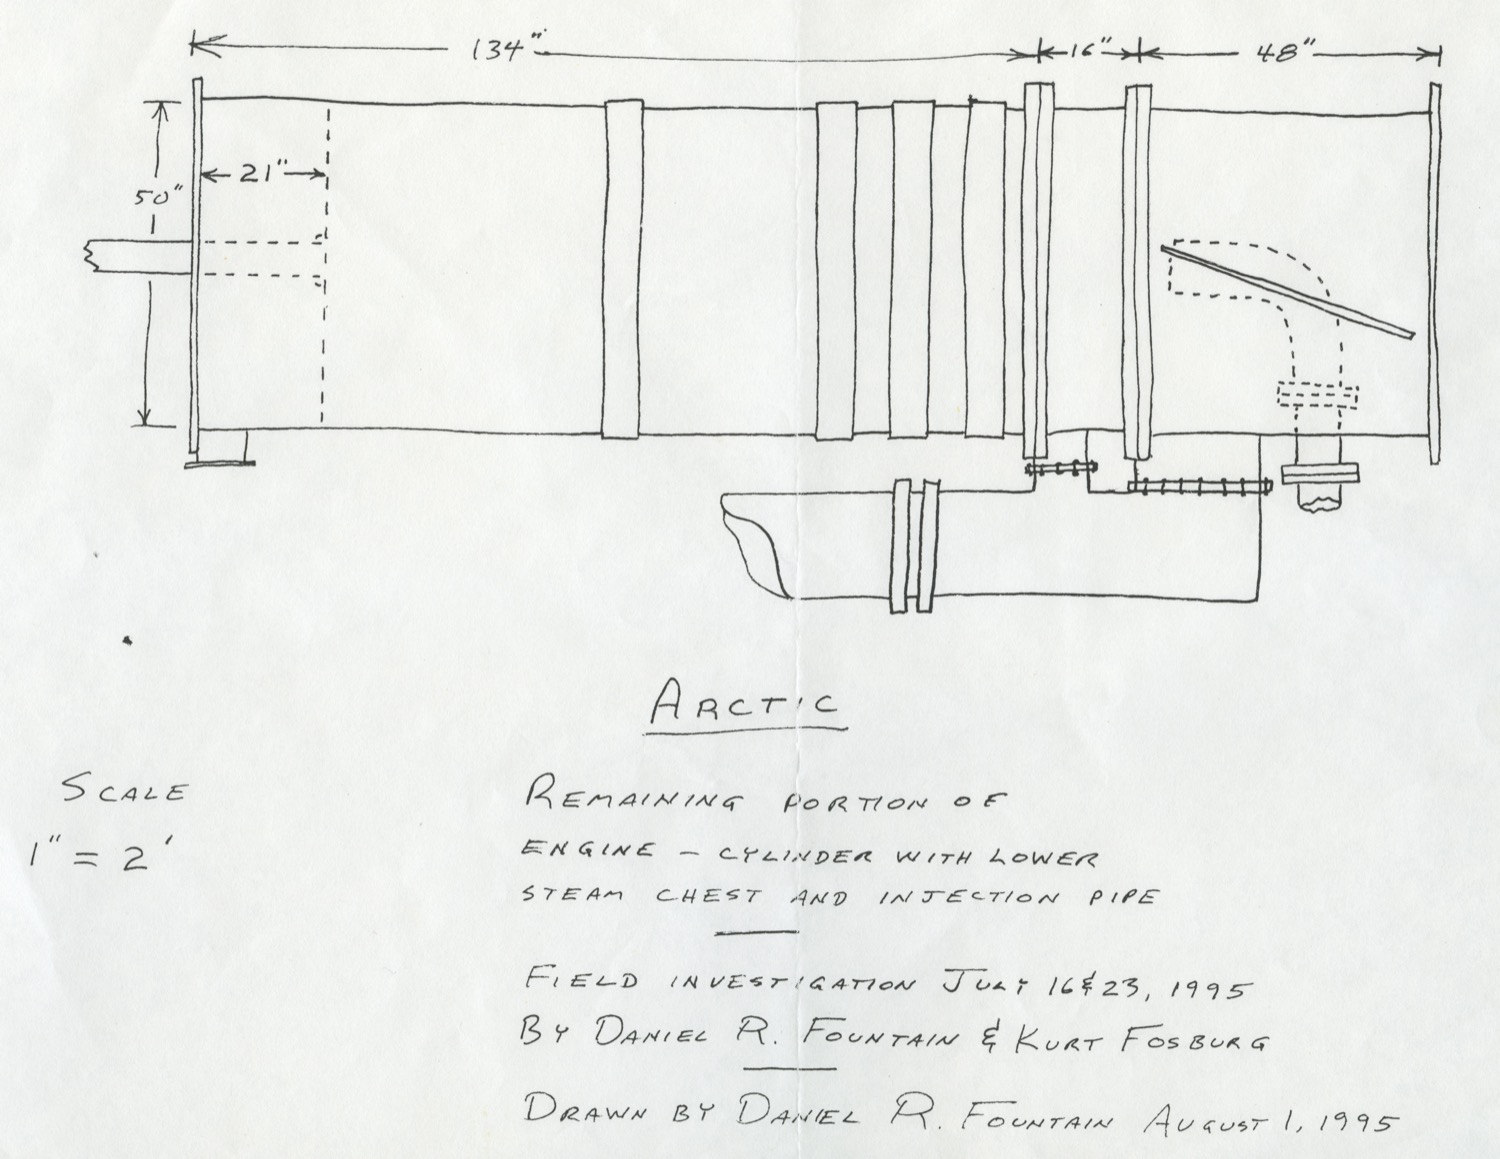 134" 16" 48"
21"
50"
ARCTIC
SCALE
1" = 2'
REMAINING PORTION OF
ENGINE – CYLINDER WITH LOWER
STEAM CHEST AND INJECTION PIPE
FIELD INVESTIGATION JULY 16 & 23, 1995
BY DANIEL R. FOUNTAIN & KURT FOSBURG
DRAWN BY DANIEL R. FOUNTAIN AUGUST 1, 1995